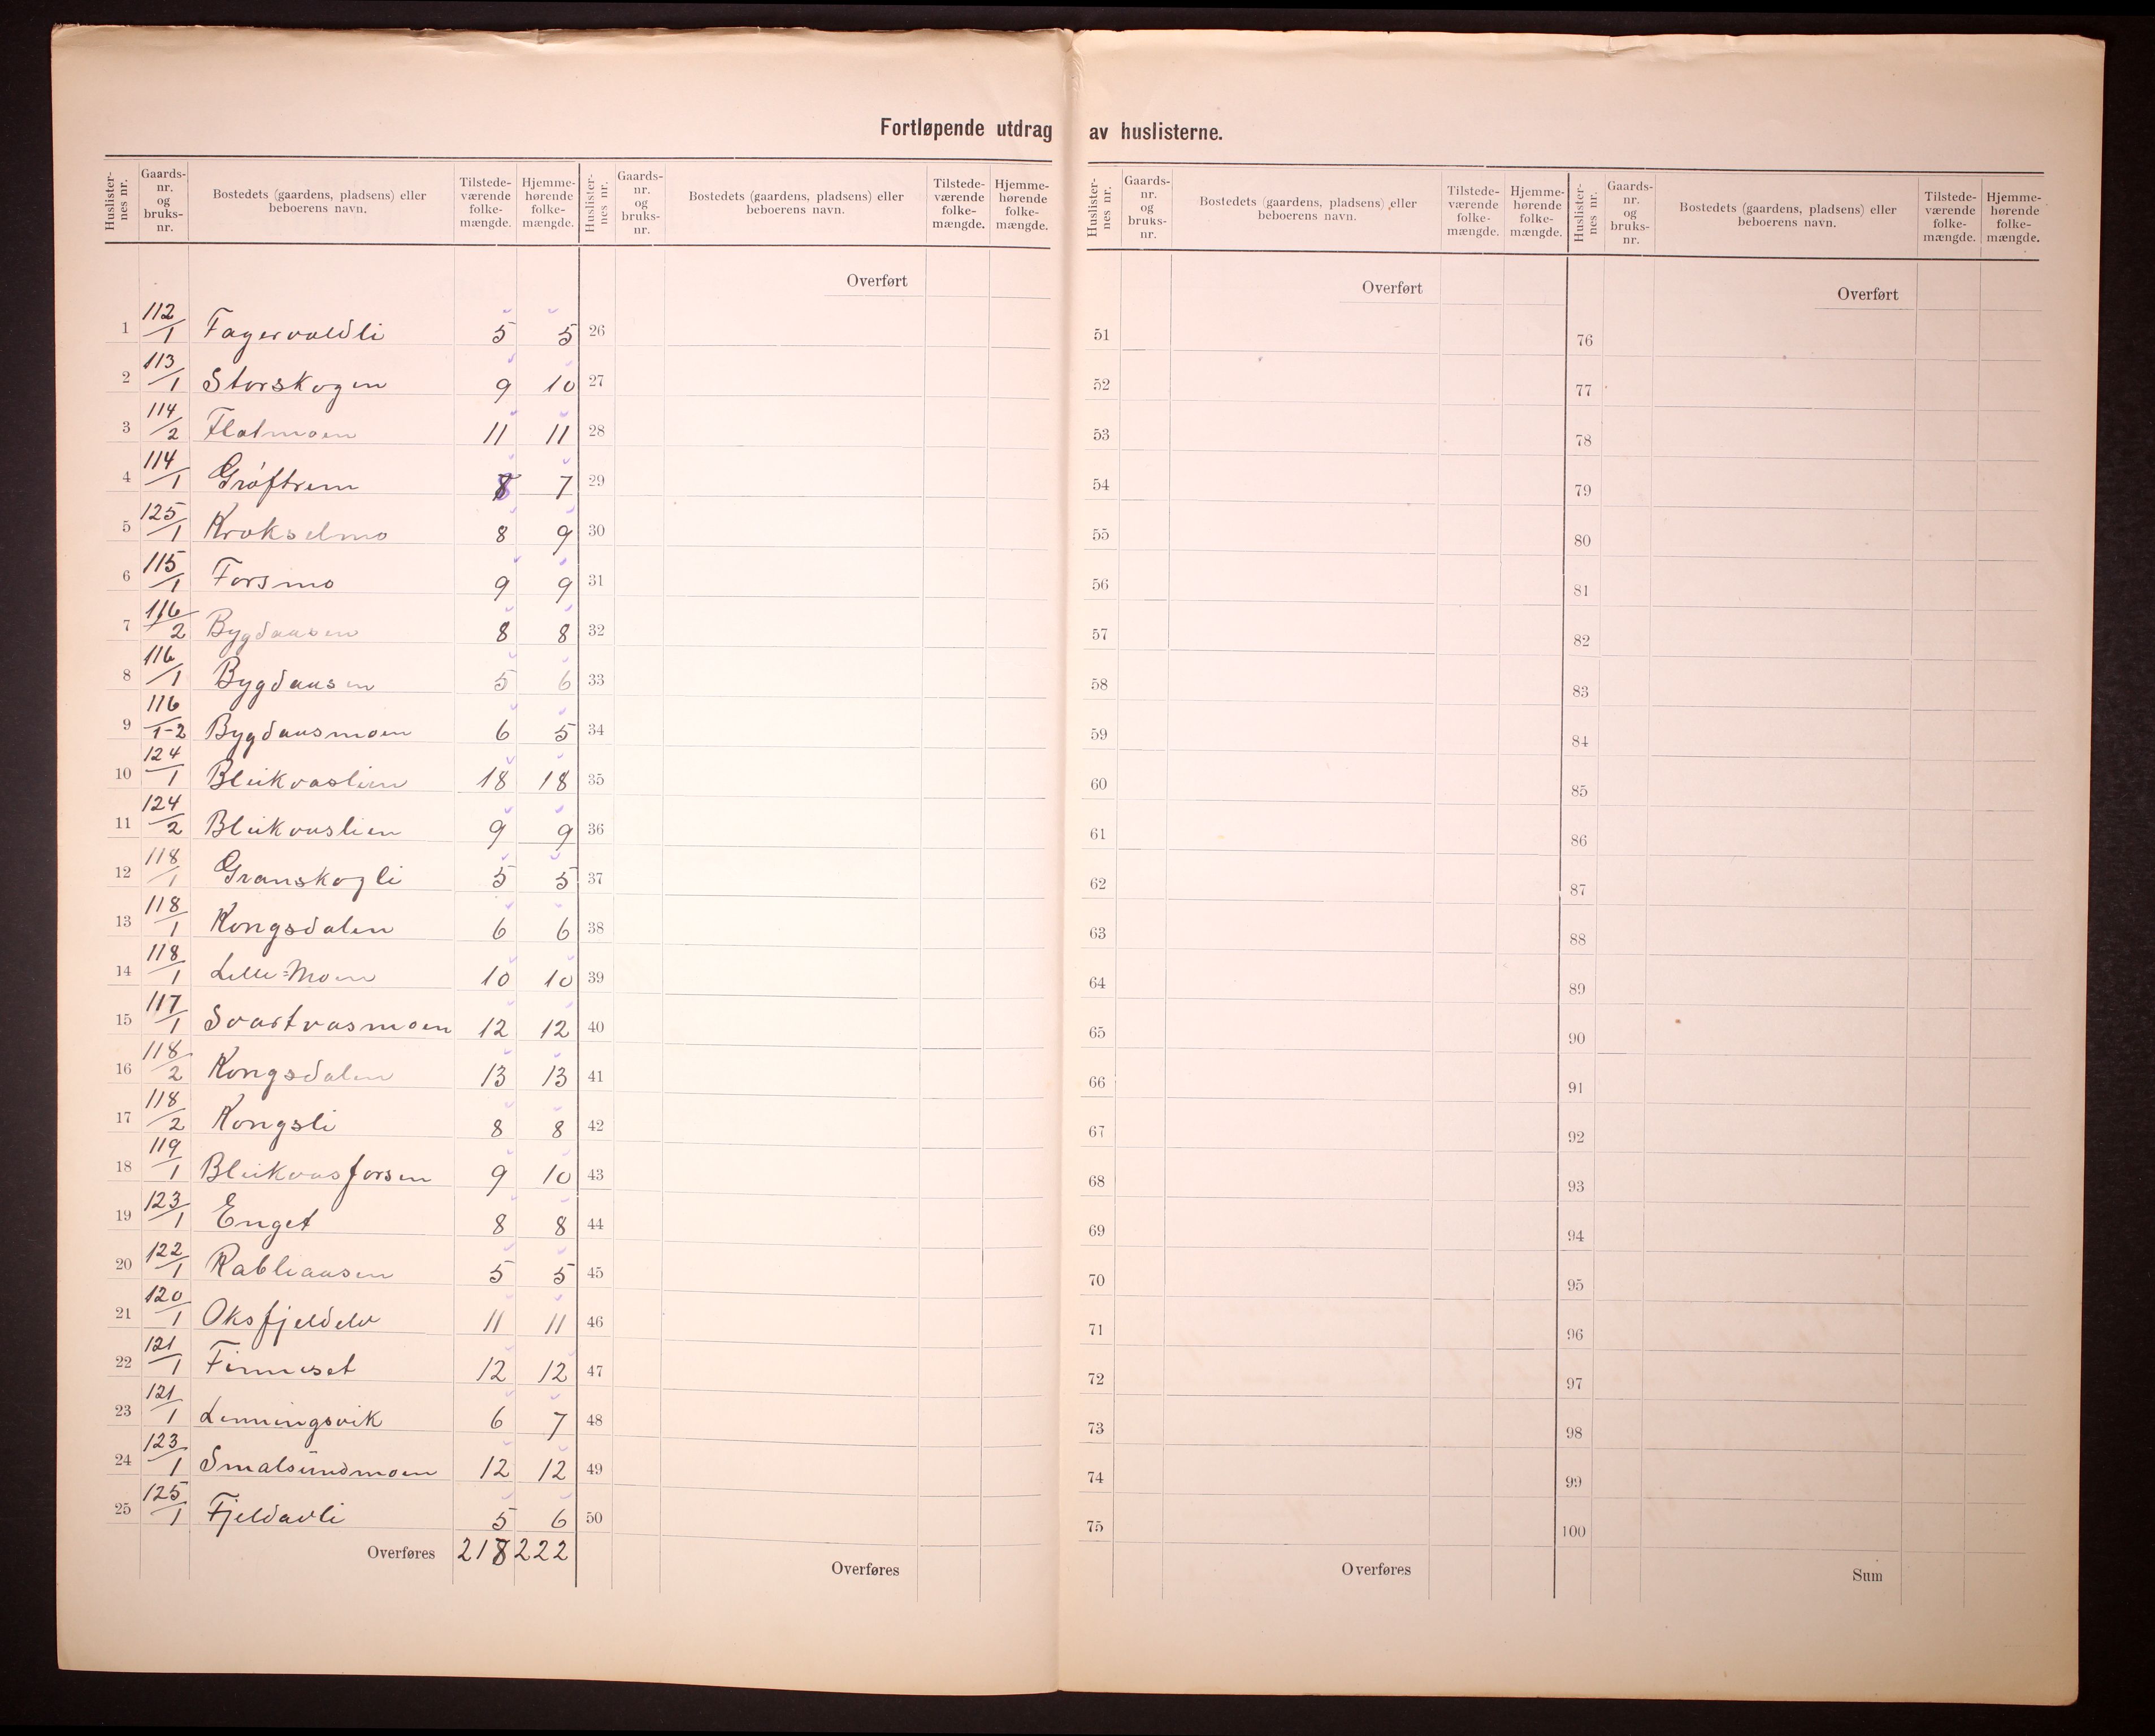 Fortløpende utdrag av huslisterne.
Huslister-nes nr. Gaards-nr. og bruks-nr. Bostedets (gaardens, pladsens) eller beboerens navn. Tilstede-værende folke-mængde. Hjemme-hørende folke-mængde.
1 112/1 Fagervoldli 5 5
2 113/1 Storskogen 9 10
3 114/2 Flatmoen 11 11
4 114/1 Grøftrem 8 7
5 125/1 Krokselmo 8 9
6 115/1 Forsmo 9 9
7 116/2 Bygdaasen 8 8
8 116/1 Bygdaasen 5 6
9 116/1-2 Bygdaasmoen 6 5
10 124/1 Bleikvaslien 18 18
11 124/2 Bleikvaslien 9 9
12 118/1 Granskogli 5 5
13 118/1 Kongsdalen 6 6
14 118/1 Lille=Moen 10 10
15 117/1 Svartvasmoen 12 12
16 118/2 Kongsdalen 13 13
17 118/2 Kongsli 8 8
18 119/1 Bleikvasforsen 9 10
19 123/1 Enget 8 8
20 122/1 Rabliaasen 5 5
21 120/1 Oksfjeldelv 11 11
22 121/1 Finneset 12 12
23 121/1 Lenningsvik 6 7
24 123/1 Smalsundmoen 12 12
25 125/1 Fjeldavli 5 6
Overføres 218 222
Huslister-nes nr. Gaards-nr. og bruks-nr. Bostedets (gaardens, pladsens) eller beboerens navn. Tilstede-værende folke-mængde. Hjemme-hørende folke-mængde.
Overført
26
27
28
29
30
31
32
33
34
35
36
37
38
39
40
41
42
43
44
45
46
47
48
49
50
Overføres
Huslister-nes nr. Gaards-nr. og bruks-nr. Bostedets (gaardens, pladsens) eller beboerens navn. Tilstede-værende folke-mængde. Hjemme-hørende folke-mængde.
Overført
51
52
53
54
55
56
57
58
59
60
61
62
63
64
65
66
67
68
69
70
71
72
73
74
75
Overføres
Huslister-nes nr. Gaards-nr. og bruks-nr. Bostedets (gaardens, pladsens) eller beboerens navn. Tilstede-værende folke-mængde. Hjemme-hørende folke-mængde.
Overført
76
77
78
79
80
81
82
83
84
85
86
87
88
89
90
91
92
93
94
95
96
97
98
99
100
Sum